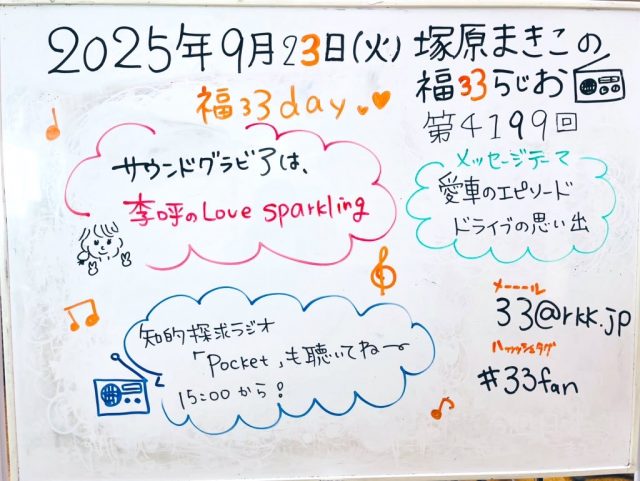 2025年9月23日(火) 塚原まきこの
福33らじお
福33day
第4199回
サウンドグラビアは、
李呼のLove sparkling
メッセージテーマ
愛車のエピソード
ドライブの思い出
知的探求ラジオ
「Pocket」も聴いてね〜
15:00から!
メーール
33@rkk.jp
ハッシュタグ
#33fan